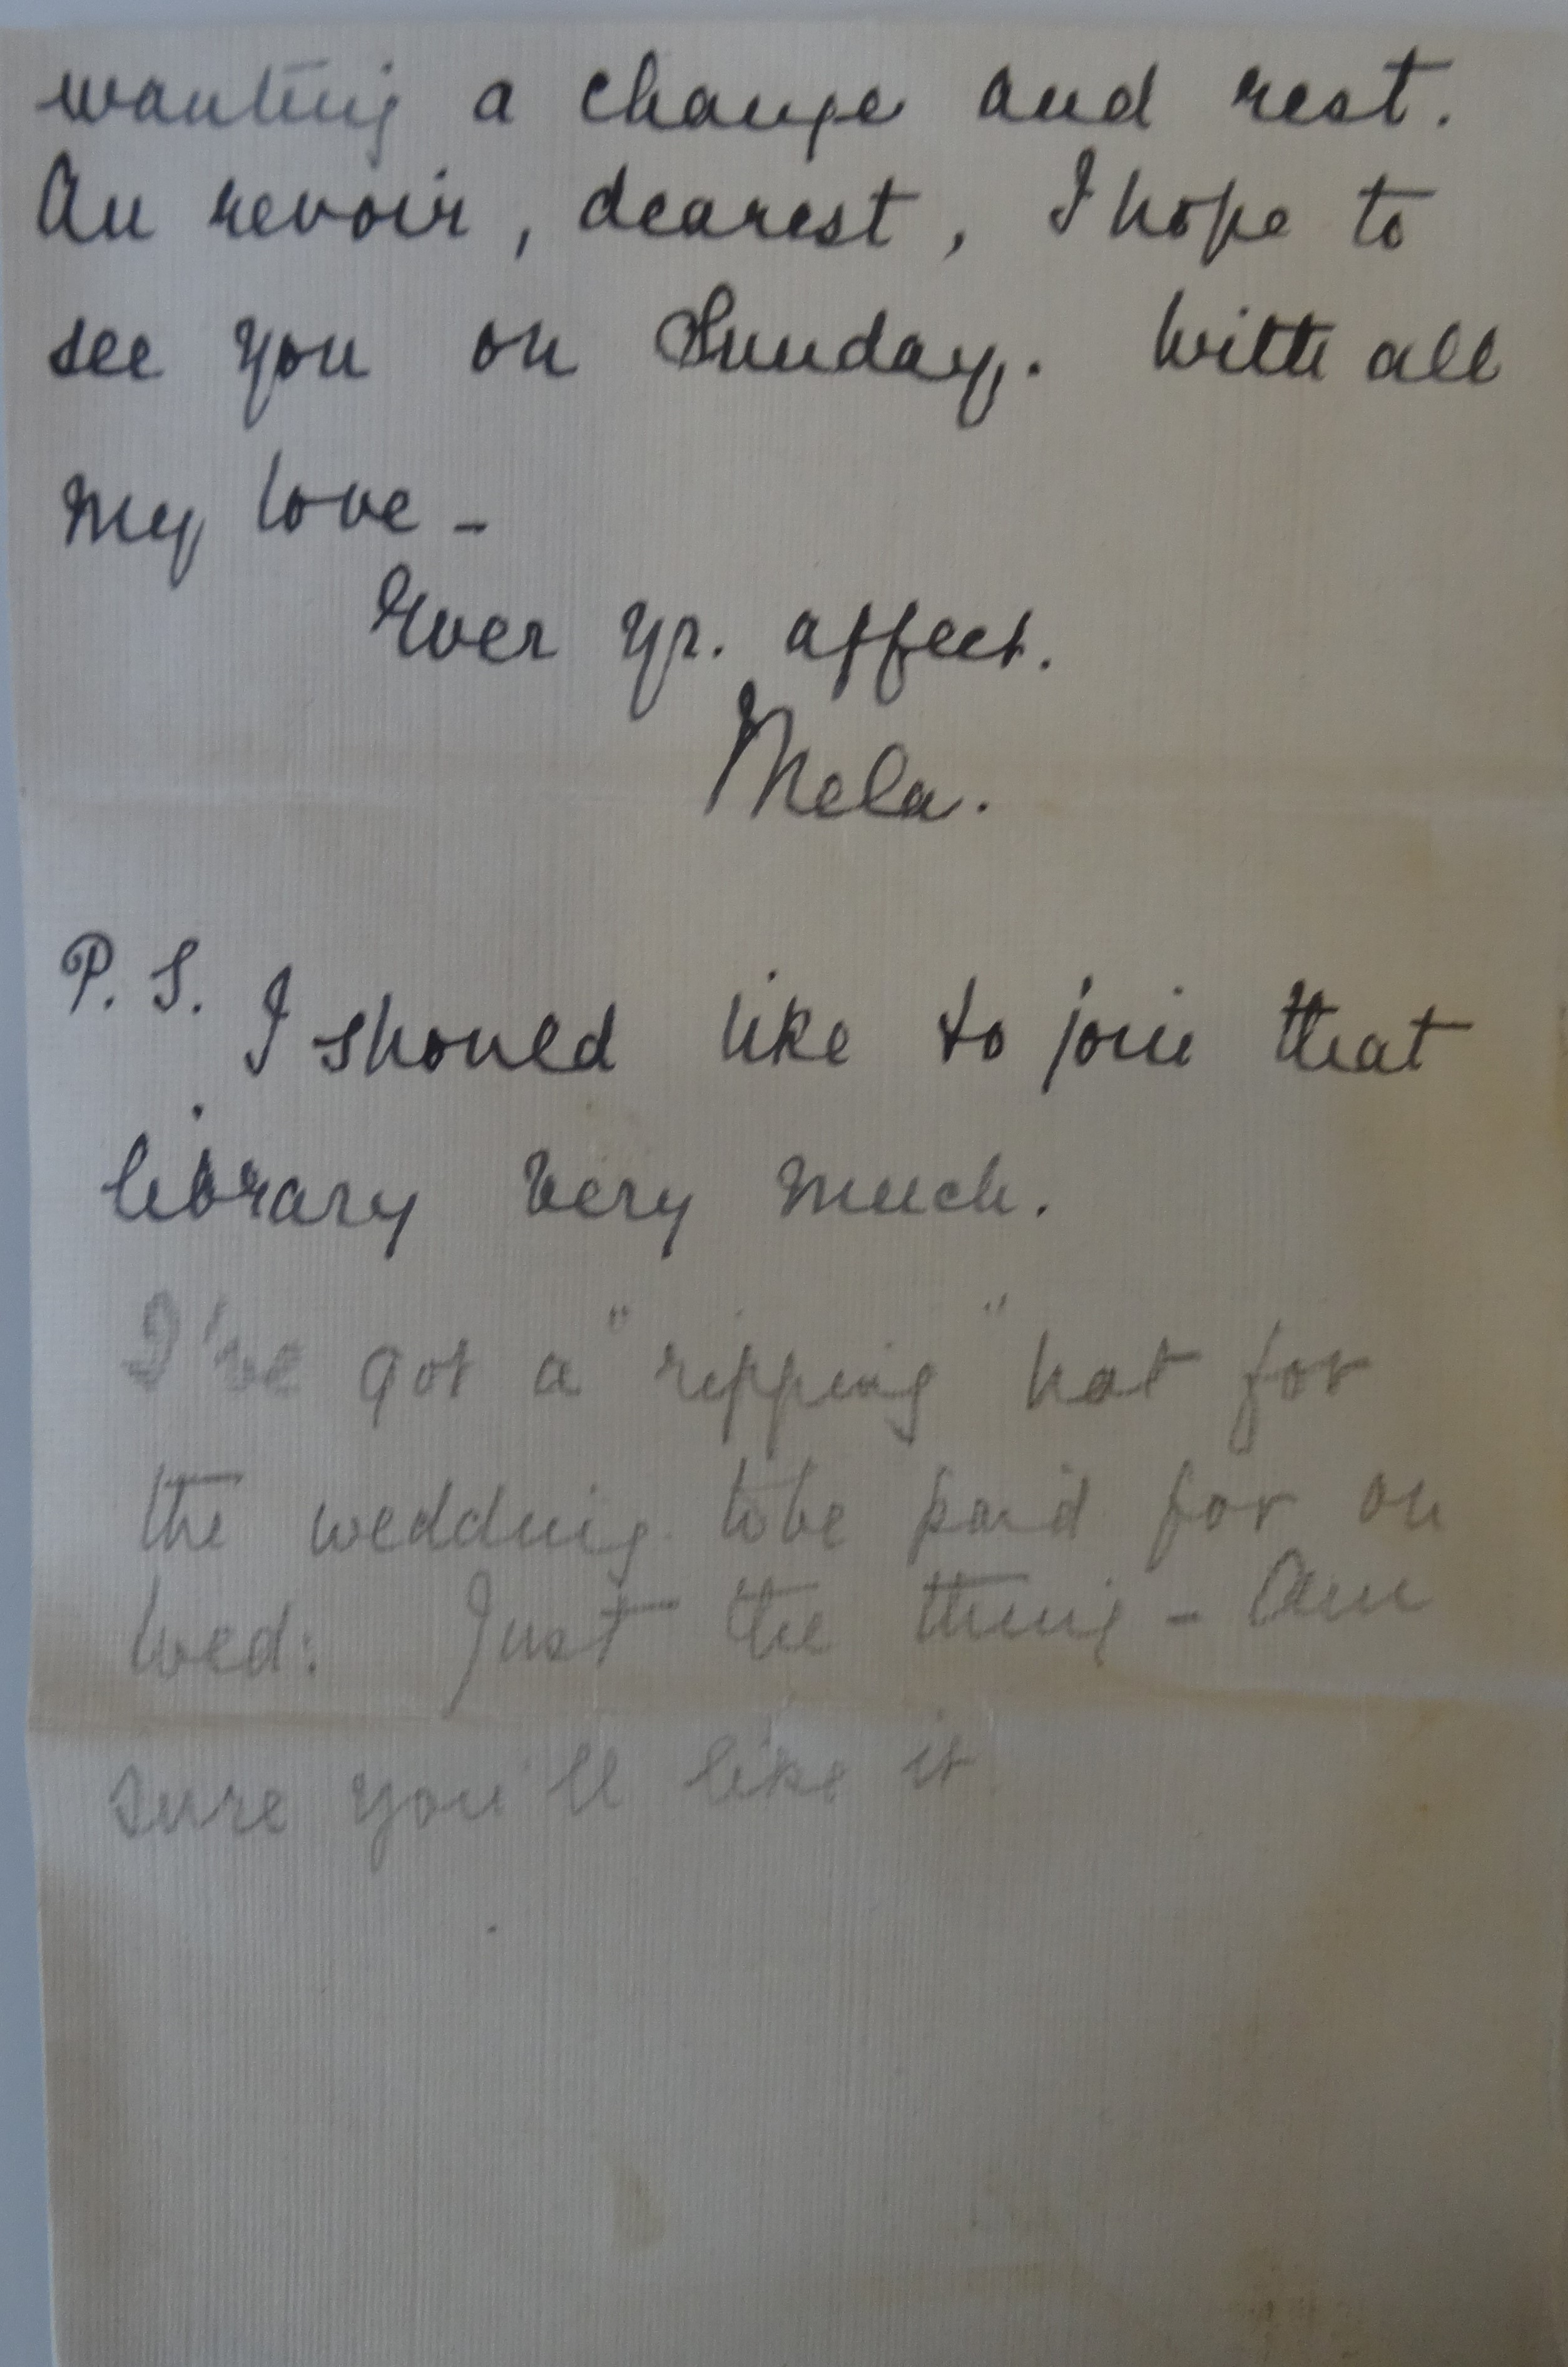 wanting a change and rest.
Au revoir, dearest, I hope to
see you on Sunday. With all
my love -
Ever yr. affect.
Mela.
P.S. I should like to join that
library very much.
I've got a "ripping" hat for
the wedding to be paid for on
Wed: Just the thing - Am
sure you'll like it